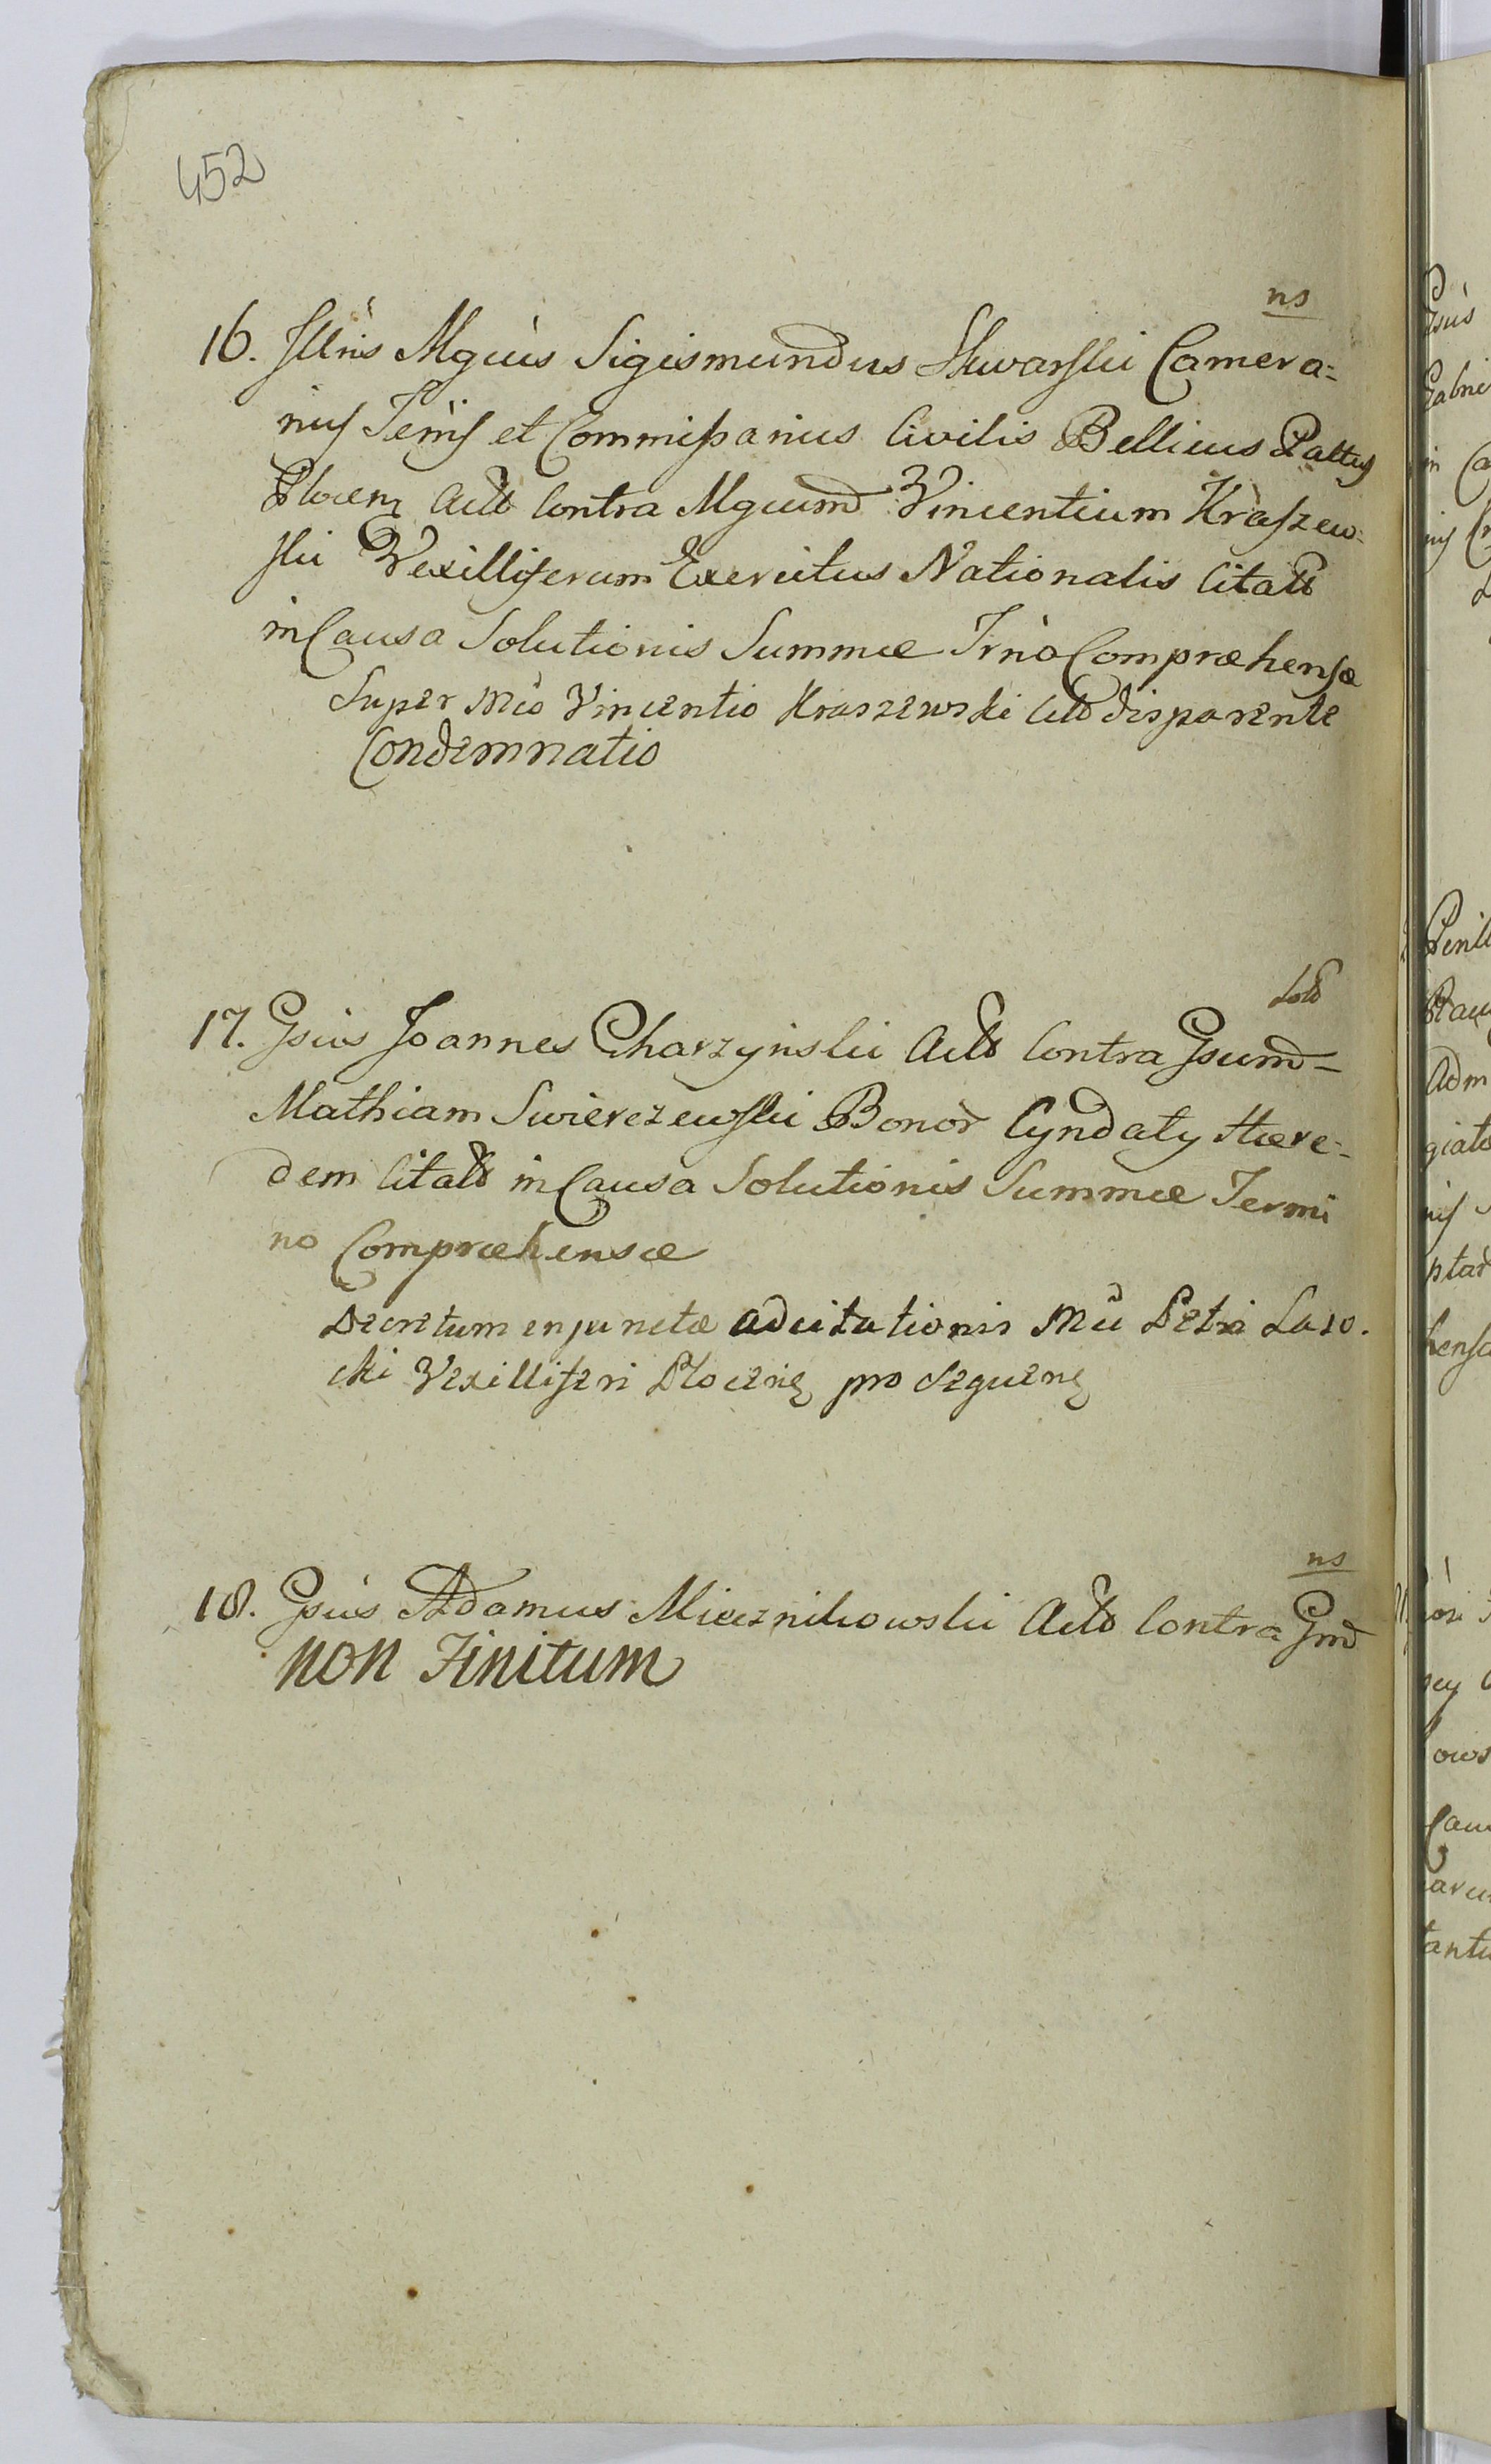 452
ns
16. Jllris Mgcus Sigismundus Skwarski Camera=
nus Terris et Commissarius Civilis Bellicus Palttus
Plocen Actt Contra Mgcum Vincentium Kraszew=
ski Vexilliferum Exercitus Nationalis Citatt
in Causa Solutionis Summæ Trno Compræhensæ
Super Mco Vincentio Kraszewski Citt disparente
Condemnatio
17. Gsus Joannes Charzynski Actt Contra Gsum
Mathiam Swierczewski Bonor Cyndaty Hære=
dem Citatt in Causa Solutionis Summæ Termi
no Compræhensæ
Decretum enjunctæ adcitationis Mci Petri Laso.
cki Vexilliferi Plocens pro Sequens
ns
18. Gsus Adamus Miecznikowski Actt Contra Gnd
non Finitum